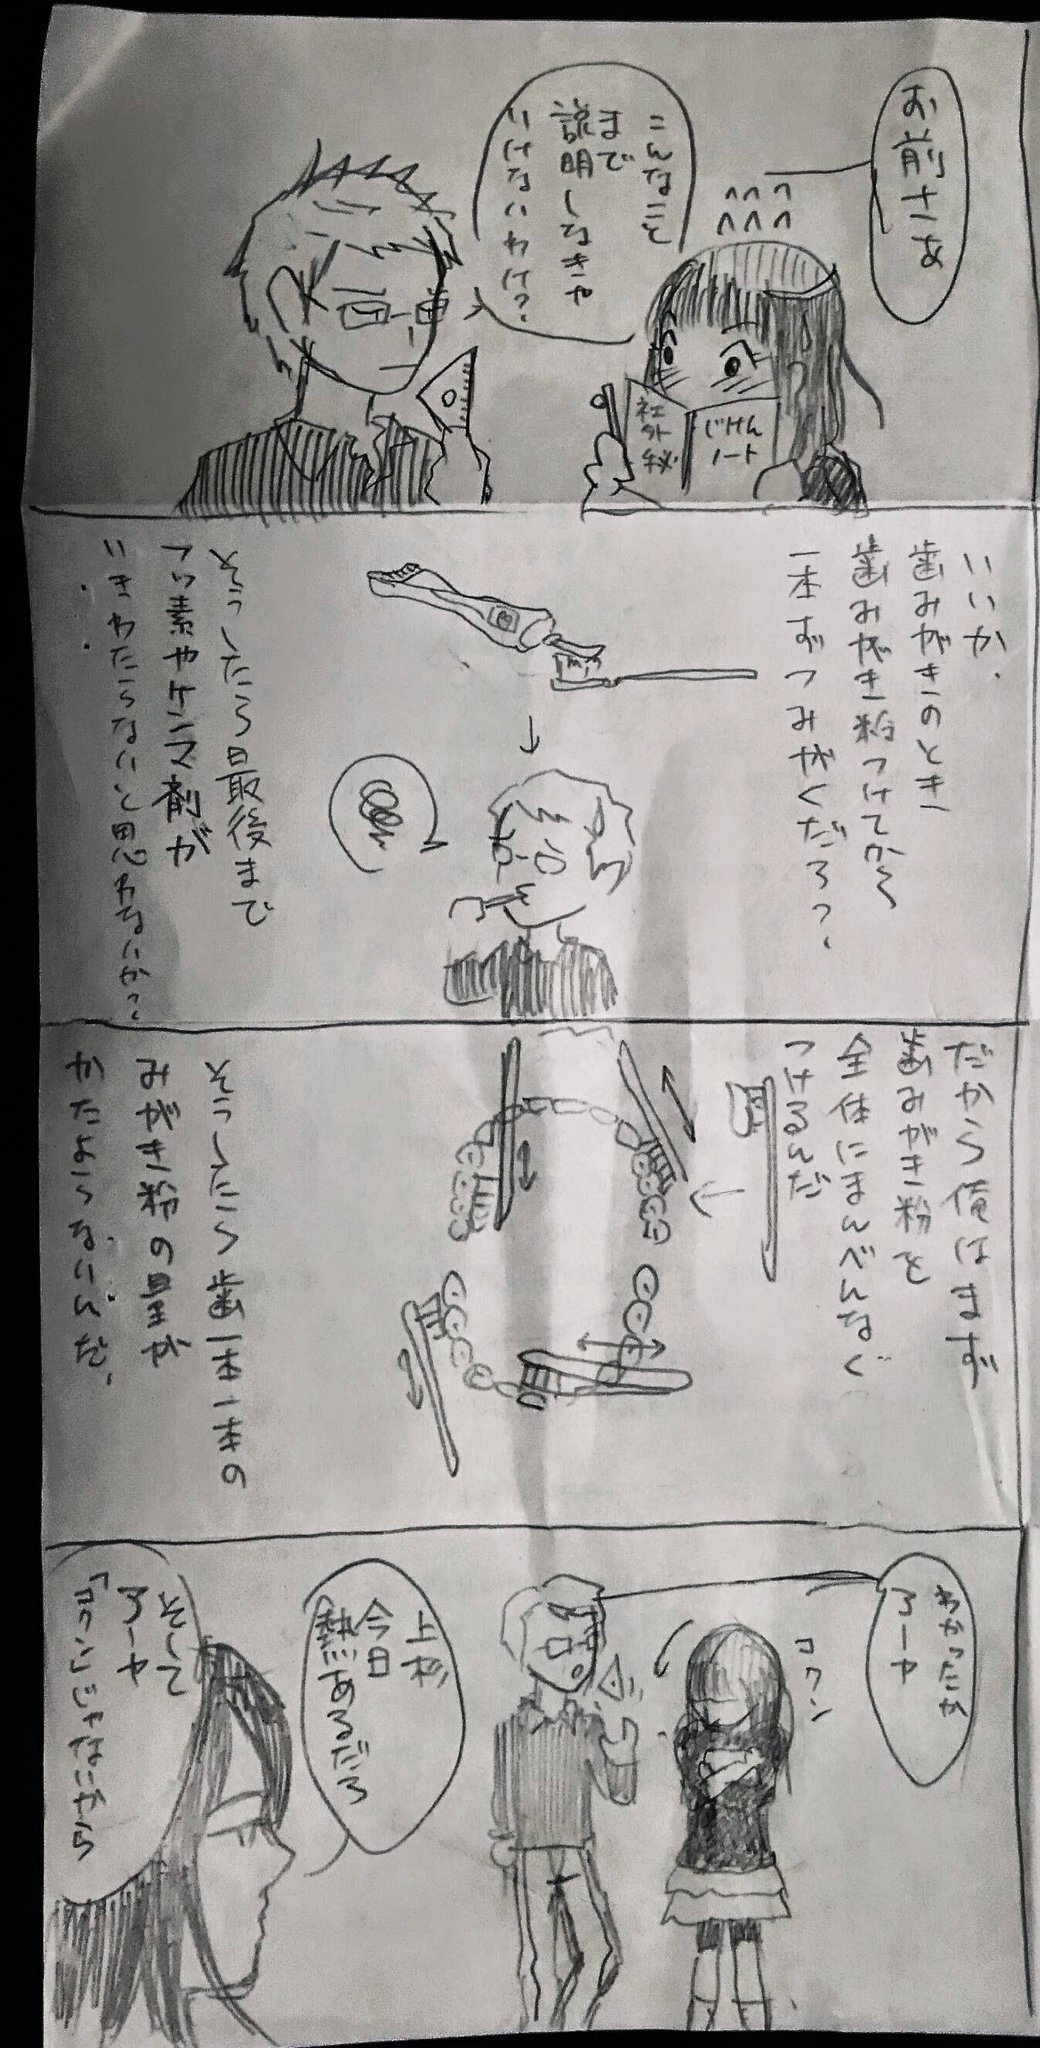 お前さあ
こんなこと
まで
説明しなきゃ
いけないわけ?
社外秘
じけん
ノート
いいか、
歯みがきのとき
歯みがき粉つけてから
一本ずつみがくだろ?
そうしたら最後まで
フッ素やケンマ剤が
いきわたらないと思わないか?
だから俺はまず
歯みがき粉を
全体にまんべんなく
つけるんだ
そうしたら歯一本一本の
みがき粉の量が
かたよらないんだ、
わかったか
アーヤ
コクン
上杉
今日
熱あるだろ
そして
アーヤ
「コクン」じゃないから